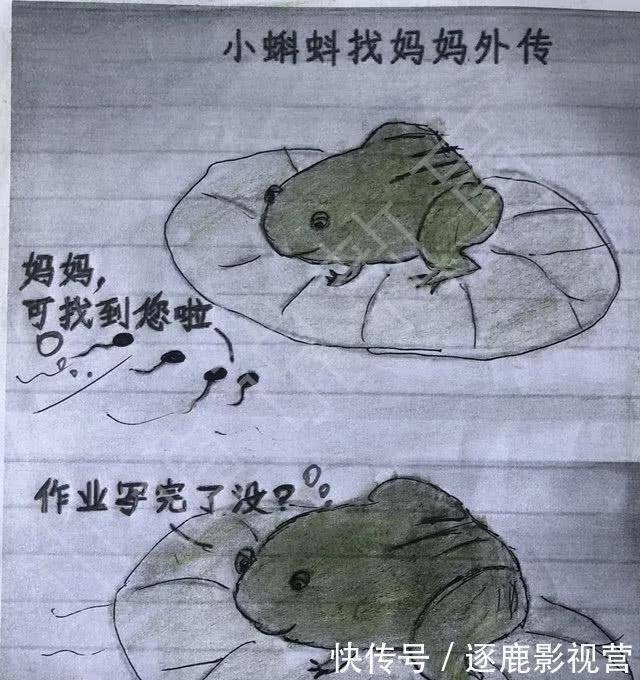 小蝌蚪找妈妈外传
妈妈，
可找到您啦
作业写完了没？
快传号 / 逐鹿影视营